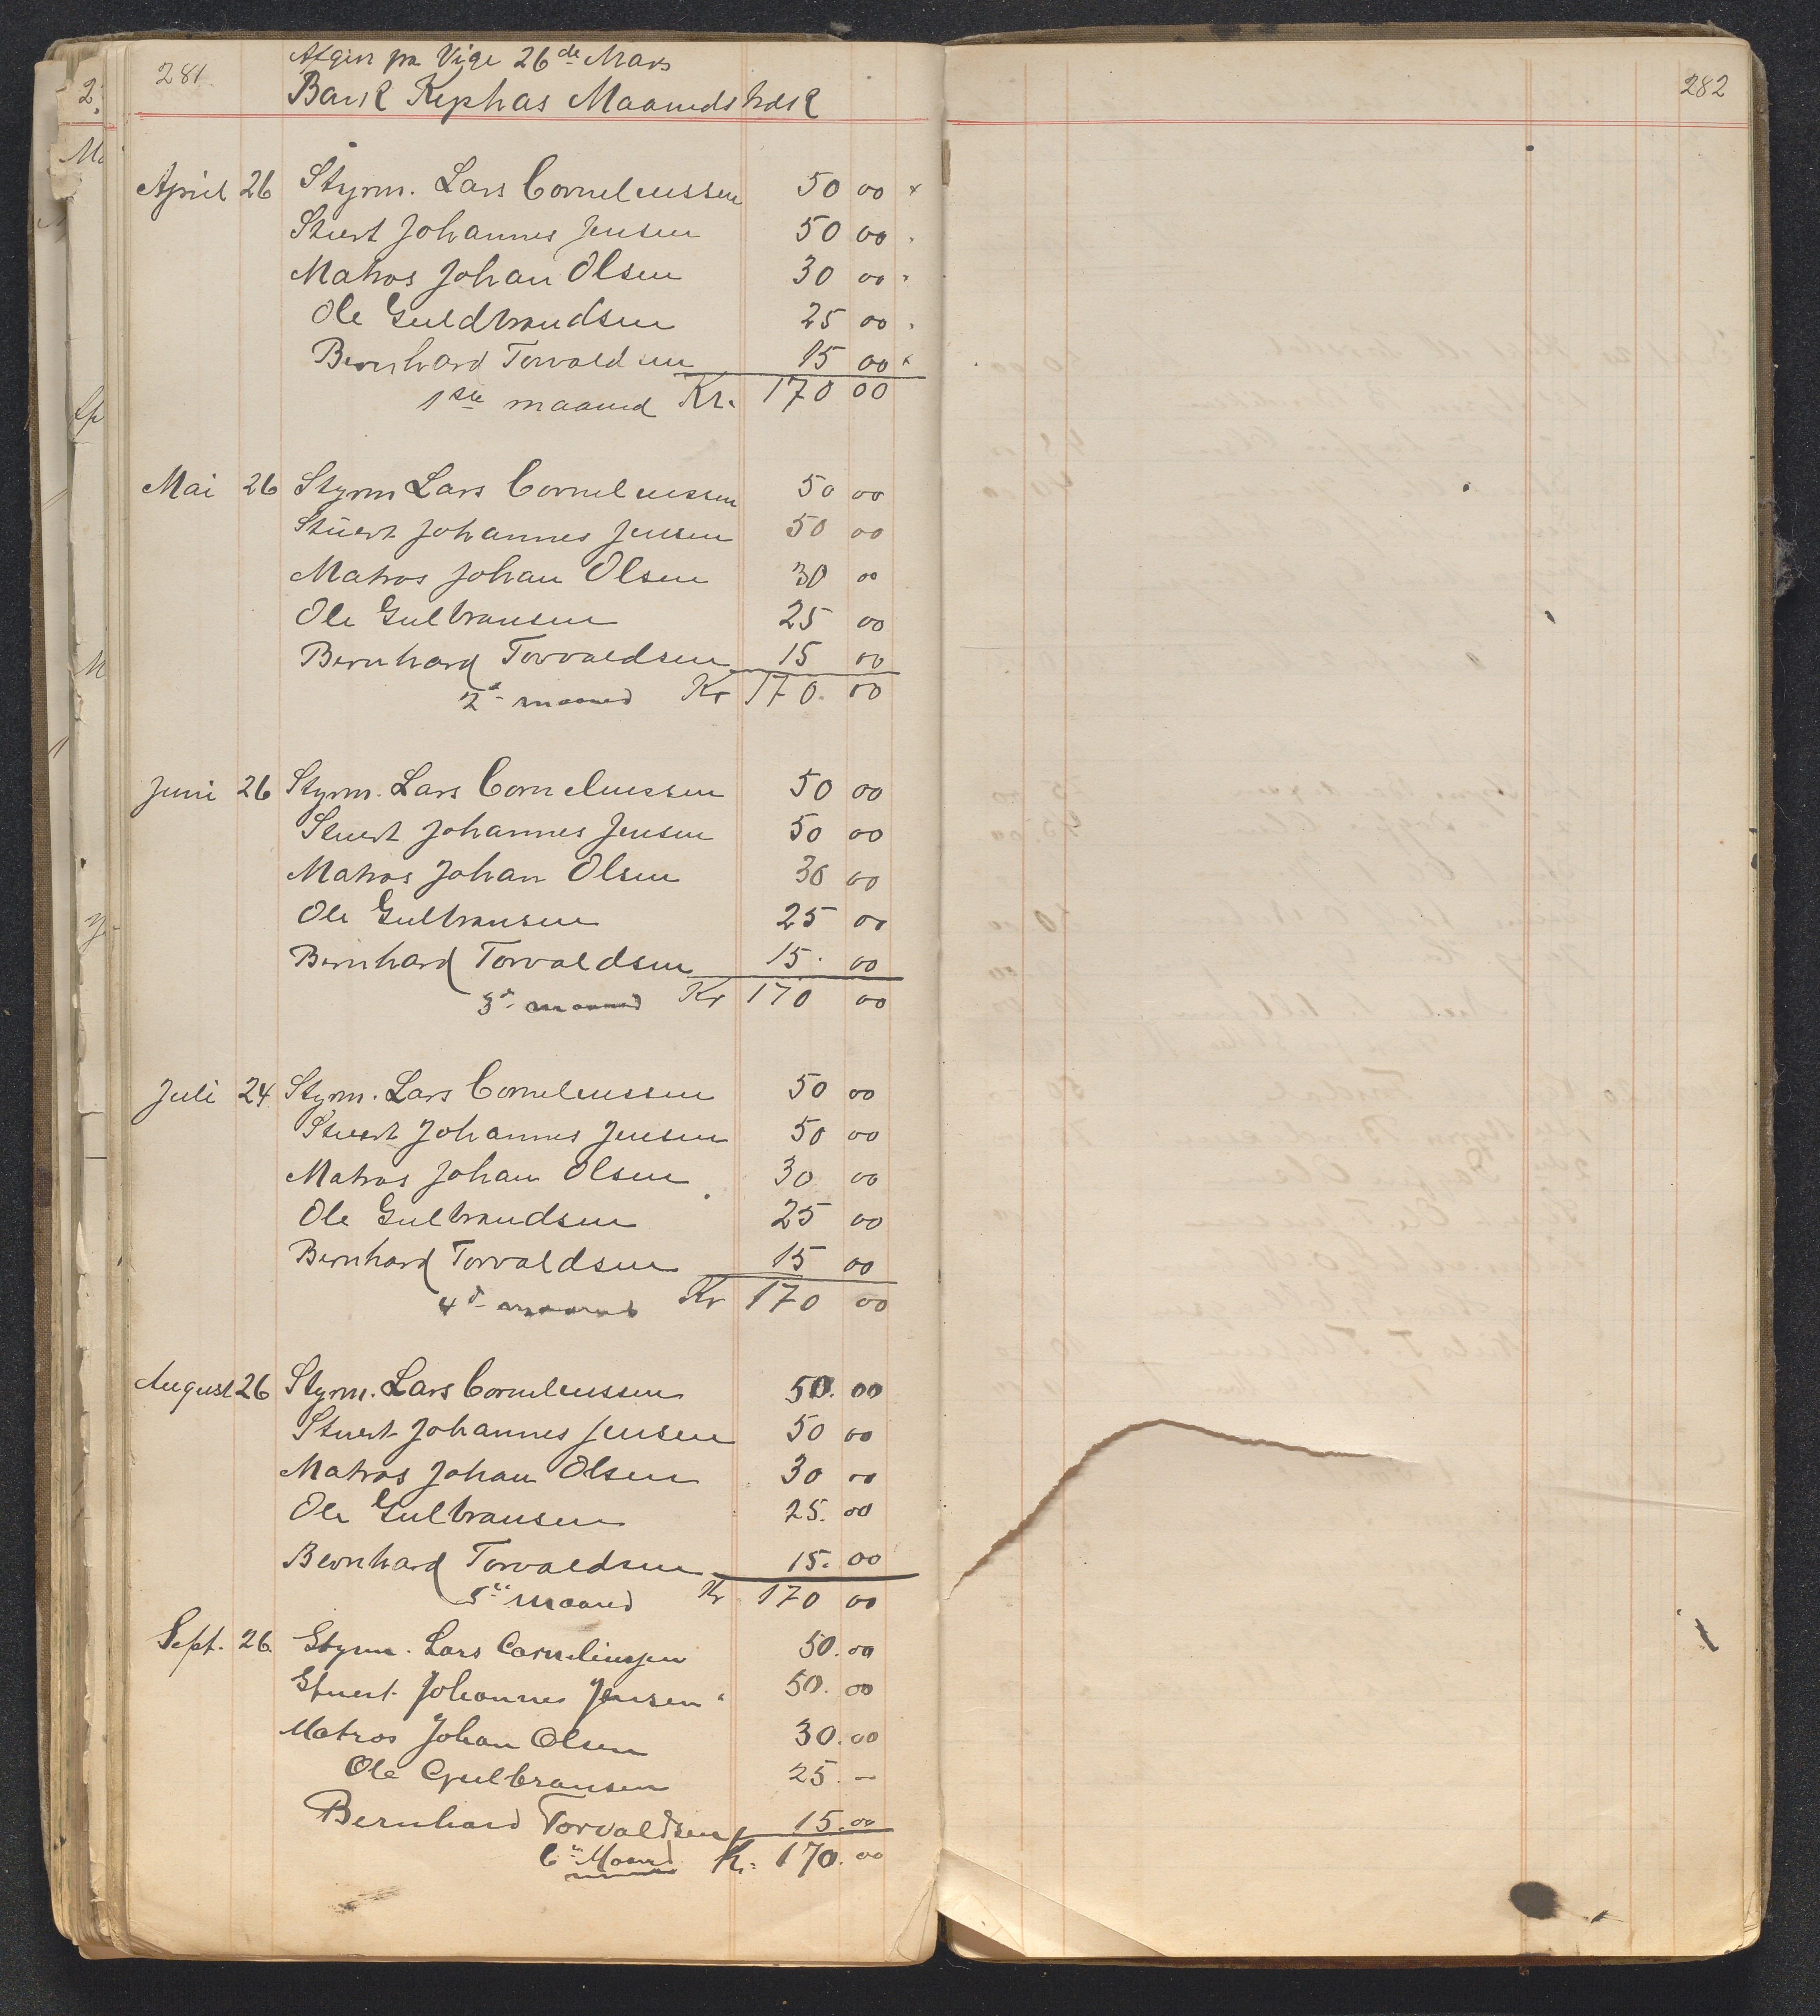 281
Afgik fra Vige 26de Mars
Bark Kephas Maanedstræk
April 26 Styrm. Lars Corneliussen 50 00
Stuert Johannes Jensen 50 00
Matros Johan Olsen 30 00
Ole Guldbrandsen 25 00
Bernhard Torvaldsen 15 00
1ste maaned Kr. 170 00
Mai 26 Styrm Lars Corneliussen 50 00
Stuert Johannes Jensen 50 00
Matros Johan Olsen 30 00
Ole Gulbransen 25 00
Bernhard Torvaldsen 15 00
2d maaned Kr 170. 00
Juni 26 Styrm. Lars Corneliussen 50 00
Stuert Johannes Jensen 50 00
Matros Johan Olsen 30 00
Ole Gulbransen 25 00
Bernhard Torvaldsen 15. 00
3d maaned Kr 170 00
Juli 24 Styrm. Lars Corneliussen 50 00
Stuert Johannes Jensen 50 00
Matros Johan Olsen 30 00
Ole Gulbrandsen 25 00
Bernhard Torvaldsen 15 00
4d maaned Kr 170 00
August 26 Styrm. Lars Corneliussen 50. 00
Stuert Johannes Jensen 50 00
Matros Johan Olsen 30 00
Ole Gulbransen 25. 00
Bernhard Torvaldsen 15. 00
5te maaned Kr 170 00
Sept. 26 Styrm. Lars Corneliussen 50.00
Stuert Johannes Jensen 50.00
Matros Johan Olsen 30.00
Ole Gulbransen 25.—
Bernhard Torvaldsen 15.00
6te Maaned Kr. 170.00
282